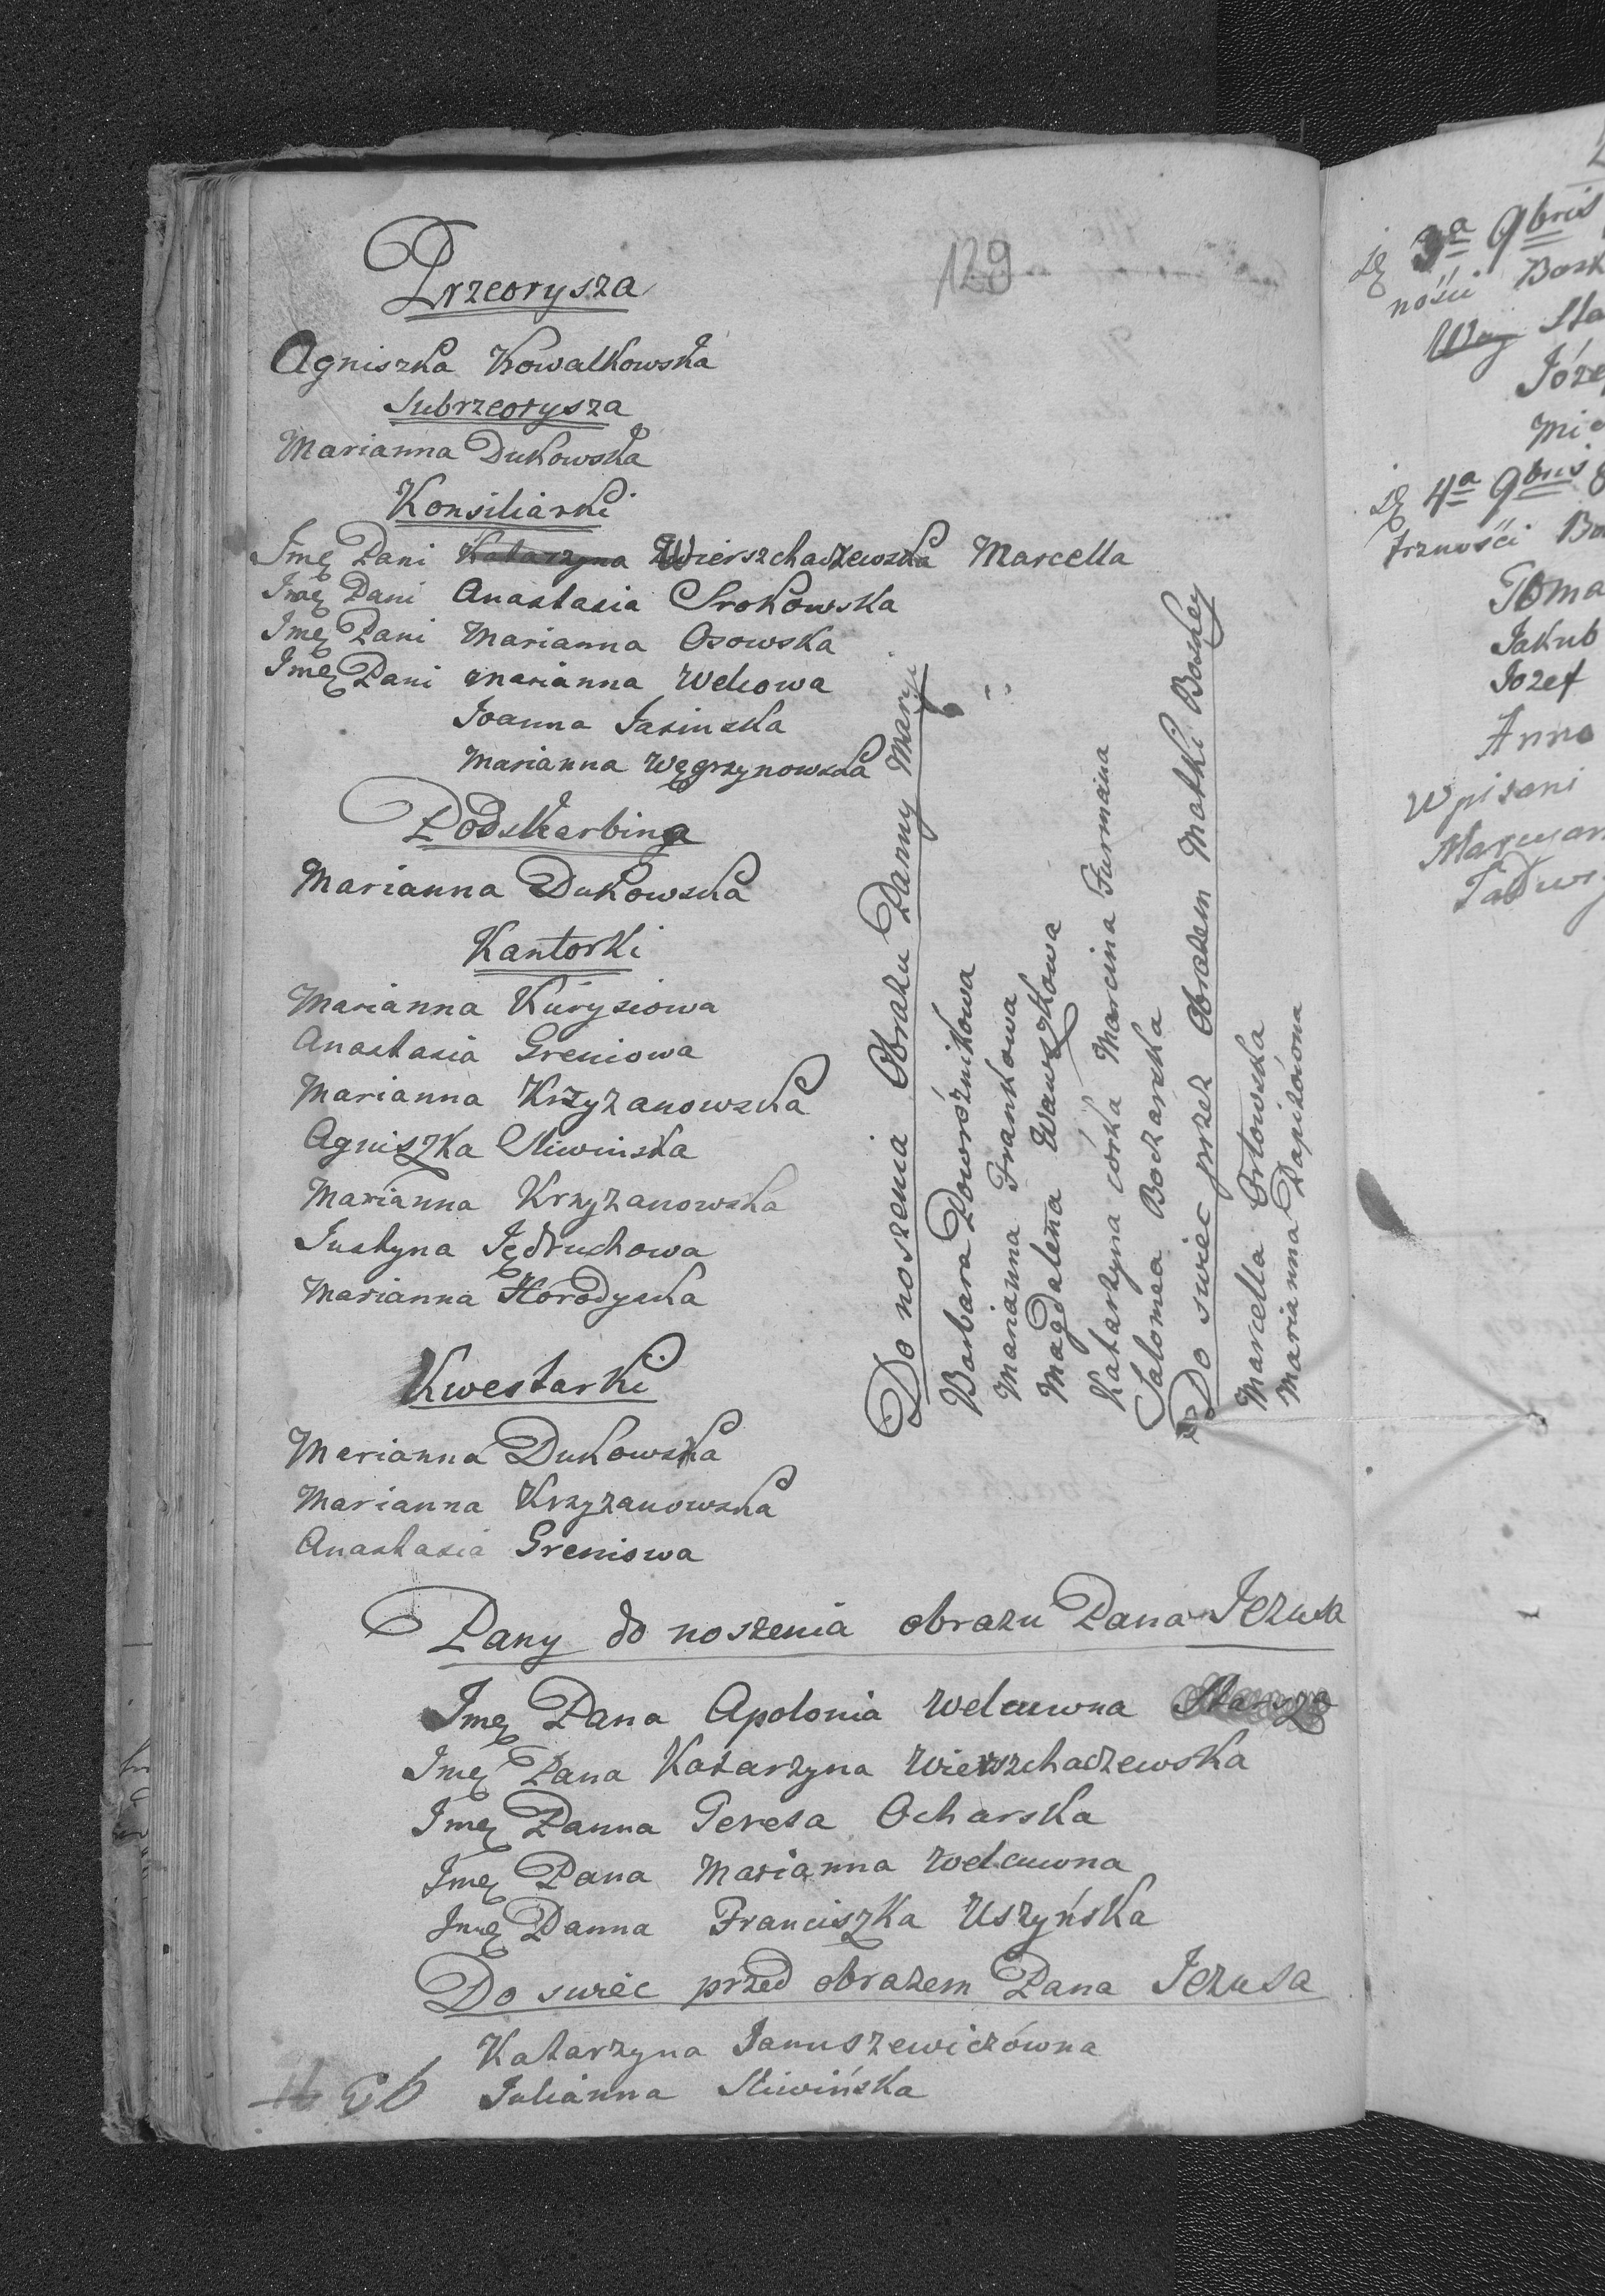 129
Przeorysza
Agniszka Kowalkowska
Subrzeorysza
Marianna Dukowska
Konsiliarki
Jmę Pani Katarzyna Wierszchaczewska Marcella
Jmę Pani Anastasia Srokowska
Jmę Pani Marianna Osowska
Jmę Pani Marianna Welcowa
Joanna Jasinska
Marianna Węgrzynowska
Podskarbina
Marianna Dukowska
Kantorki
Marianna Kurysiowa
Anastasia Greniowa
Marianna Krzyzanowska
Agniszka Sliwinska
Marianna Krzyzanowska
Justyna Jędruchowa
Marianna Horodyska
Kwestarki
Marianna Dukowska
Marianna Krzyzanowska
Anastasia Greniowa
Do noszenia Obrazu Panny Maryi
Barbara Powróznikowa
Marianna Frankowa
Magdalena Wawszkowa
Katarzyna córka Marcina Furmaina
Salomea Boczarska
Do swiec przez Obrazem Matki Boskey
Marcella Ortowska
Marianna Papizówna
Pany do noszenia obrazu Pana Jezusa
Jmę Pana Apolonia Welcuwna Starsza
Jmę Pana Katarzyna Wierszchaczewska
Jmę Panna Teresa Ocharska
Jmę Pana Marianna Welcuwna
Jmę Panna Franciszka Uszyńska
Do swiec przed obrazem Pana Jezusa
Katarzyna Januszewiczówna
Julianna Sliwińska
3a 9bris
ności Bosk
Sta
Józe
Mic
4a 9bris
trzności Bo
Toma
Jakub
Jozef
Anna
Wpisani